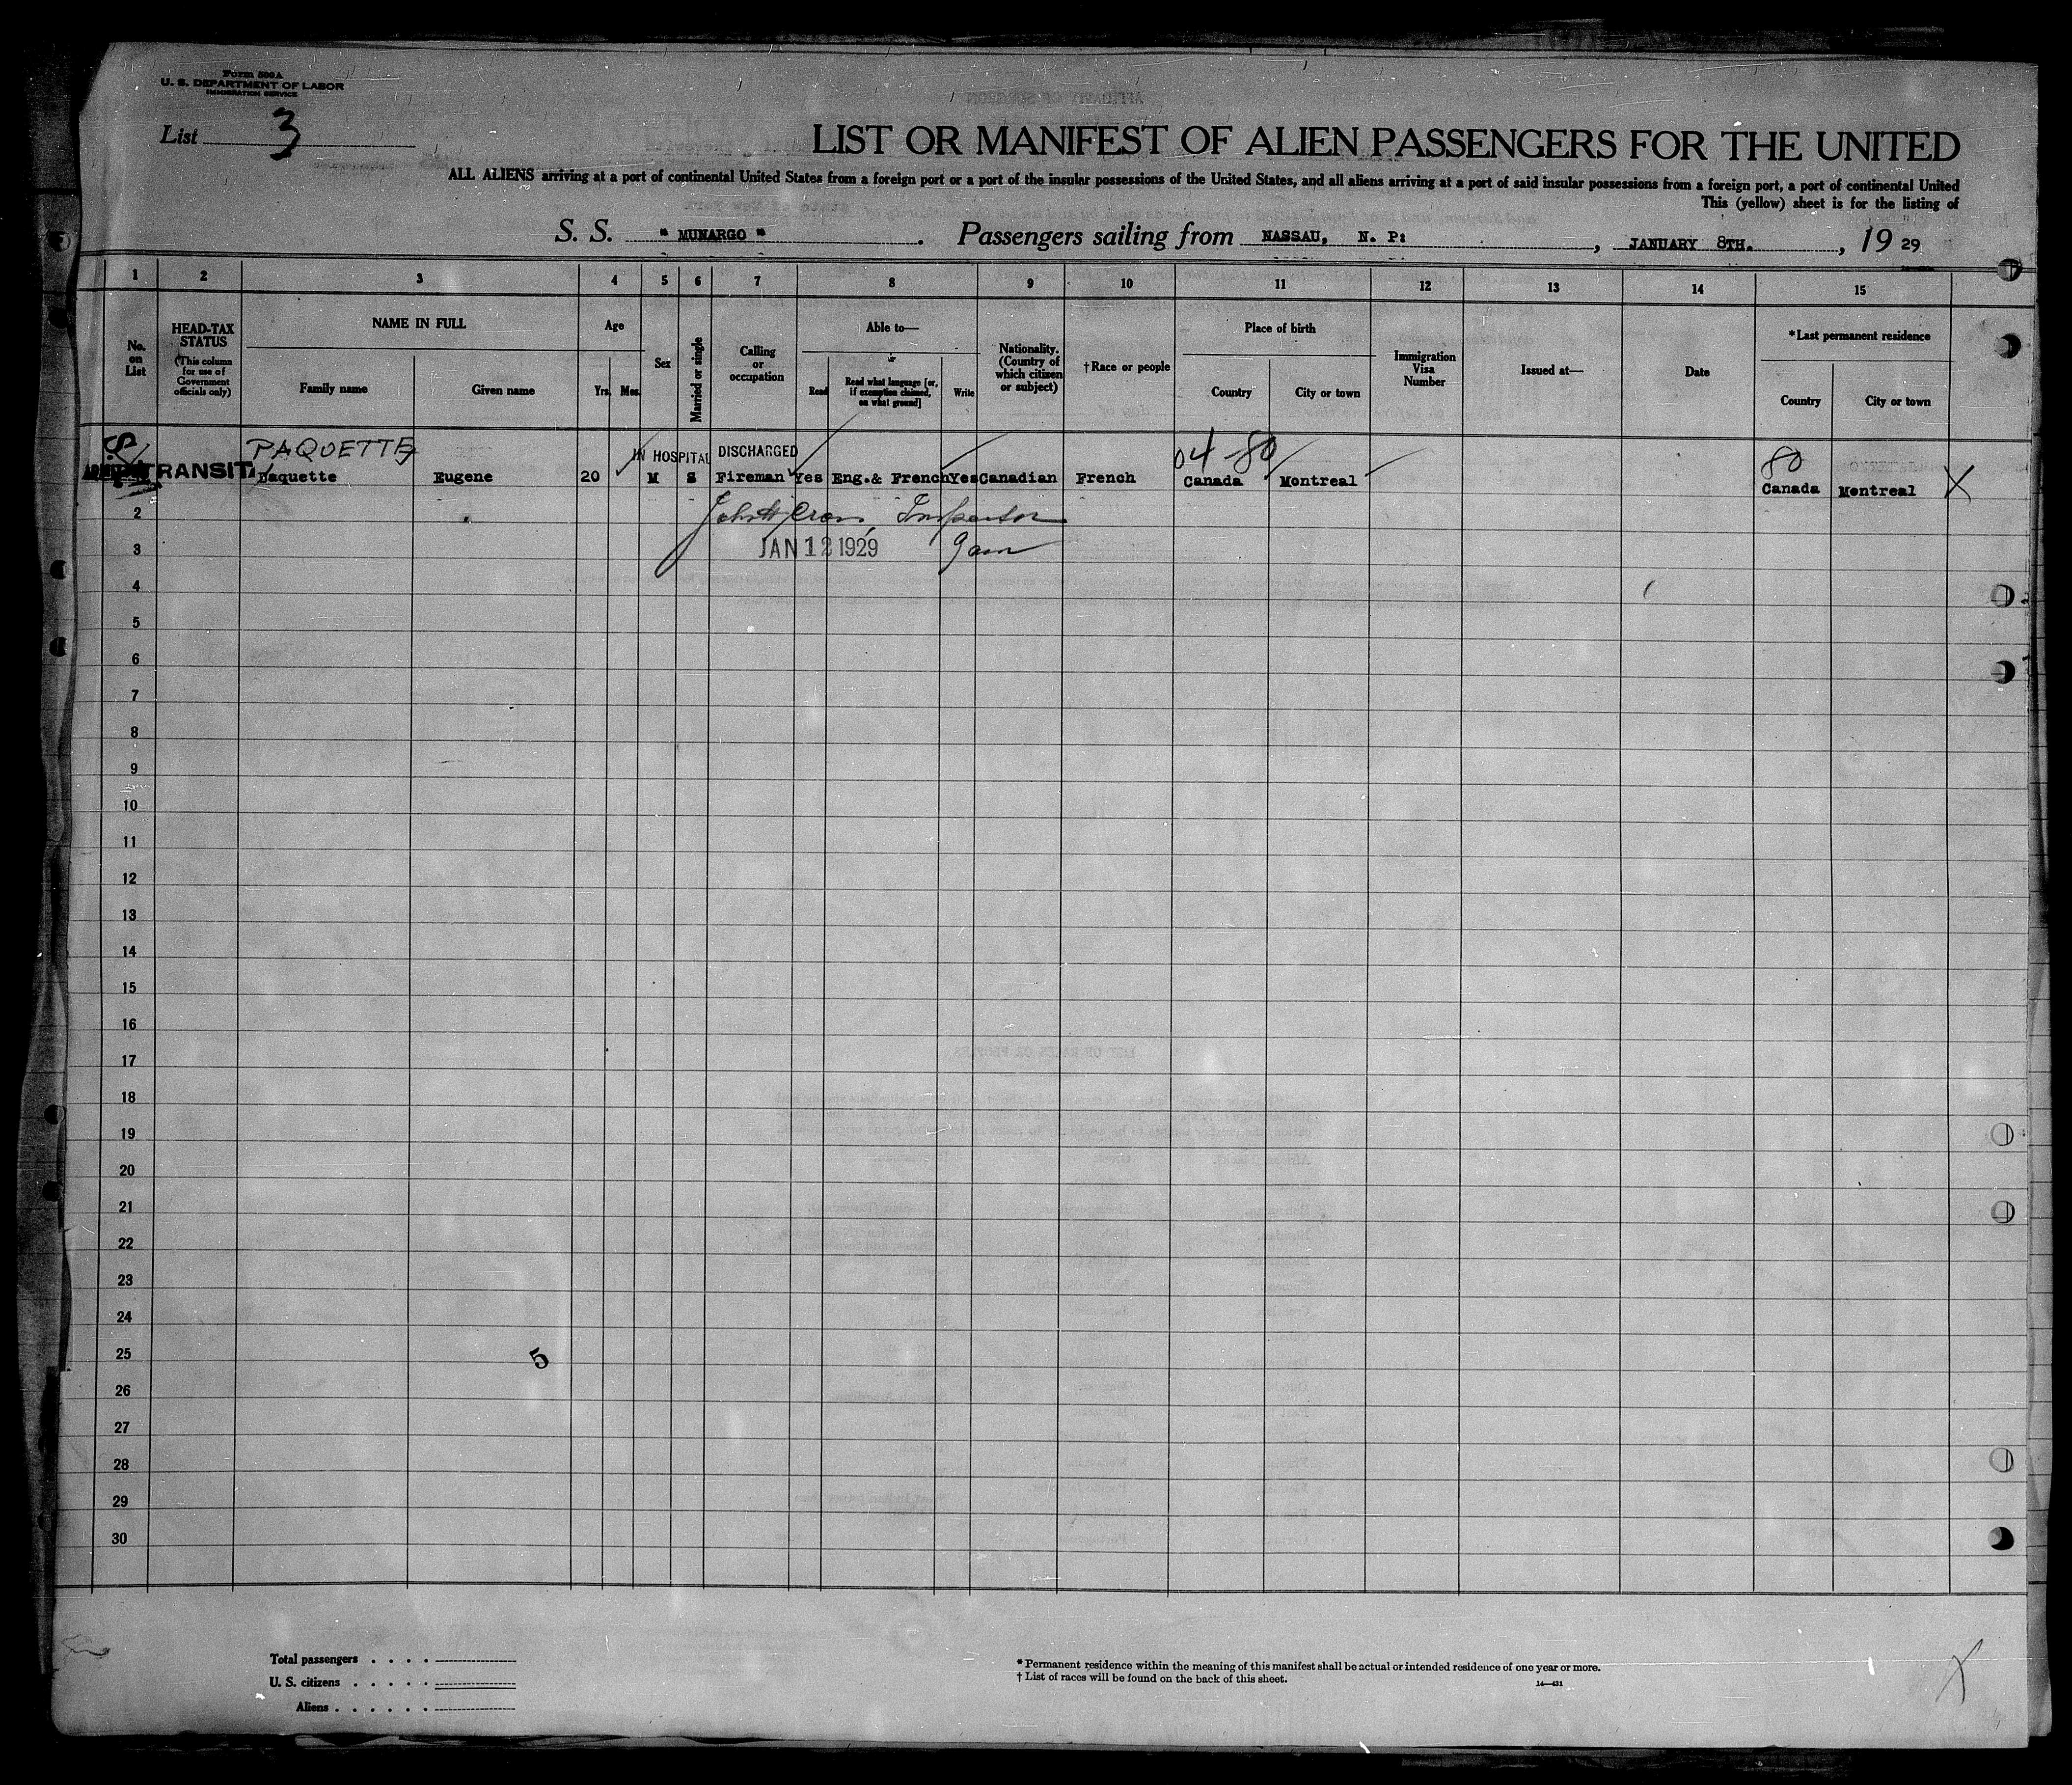 Form 500A
U. S. DEPARTMENT OF LABOR
IMMIGRATION SERVICE
List 3
LIST OR MANIFEST OF ALIEN PASSENGERS FOR THE UNITED
ALL ALIENS arriving at a port of continental United States from a foreign port or a port of the insular possessions of the United States, and all aliens arriving at a port of said insular possessions from a foreign port, a port of continental United
This (yellow) sheet is for the listing of
S. S. " MUNARGO " . Passengers sailing from NASSAU, N. P: , JANUARY 8TH. , 19 29
1 2 3 4 5 6 7 8 9 10 11 12 13 14 15
No. on List
HEAD-TAX STATUS
(This column for use of Government officials only)
NAME IN FULL
Family name Given name
Age
Yrs. Mos.
Sex
Married or single
Calling or occupation
Able to—
Read
Read what language [or, if exemption claimed, on what ground]
Write
Nationality. (Country of which citizen or subject)
†Race or people
Place of birth
Country City or town
Immigration Visa Number
Issued at—
Date
*Last permanent residence
Country City or town
PAQUETTE IN HOSPITAL DISCHARGED 04-80 80
TRANSIT Paquette Eugene 20 M S Fireman Yes Eng.& French Yes Canadian French Canada Montreal Canada Montreal X
2 Inspector
3 JAN 12 1929 9am
4
5
6
7
8
9
10
11
12
13
14
15
16
17
18
19
20
21
22
23
24
25 5
26
27
28
29
30
Total passengers . . . .
U. S. citizens . . . . .
Aliens . . . . . .
* Permanent residence within the meaning of this manifest shall be actual or intended residence of one year or more.
† List of races will be found on the back of this sheet.
14—431
X